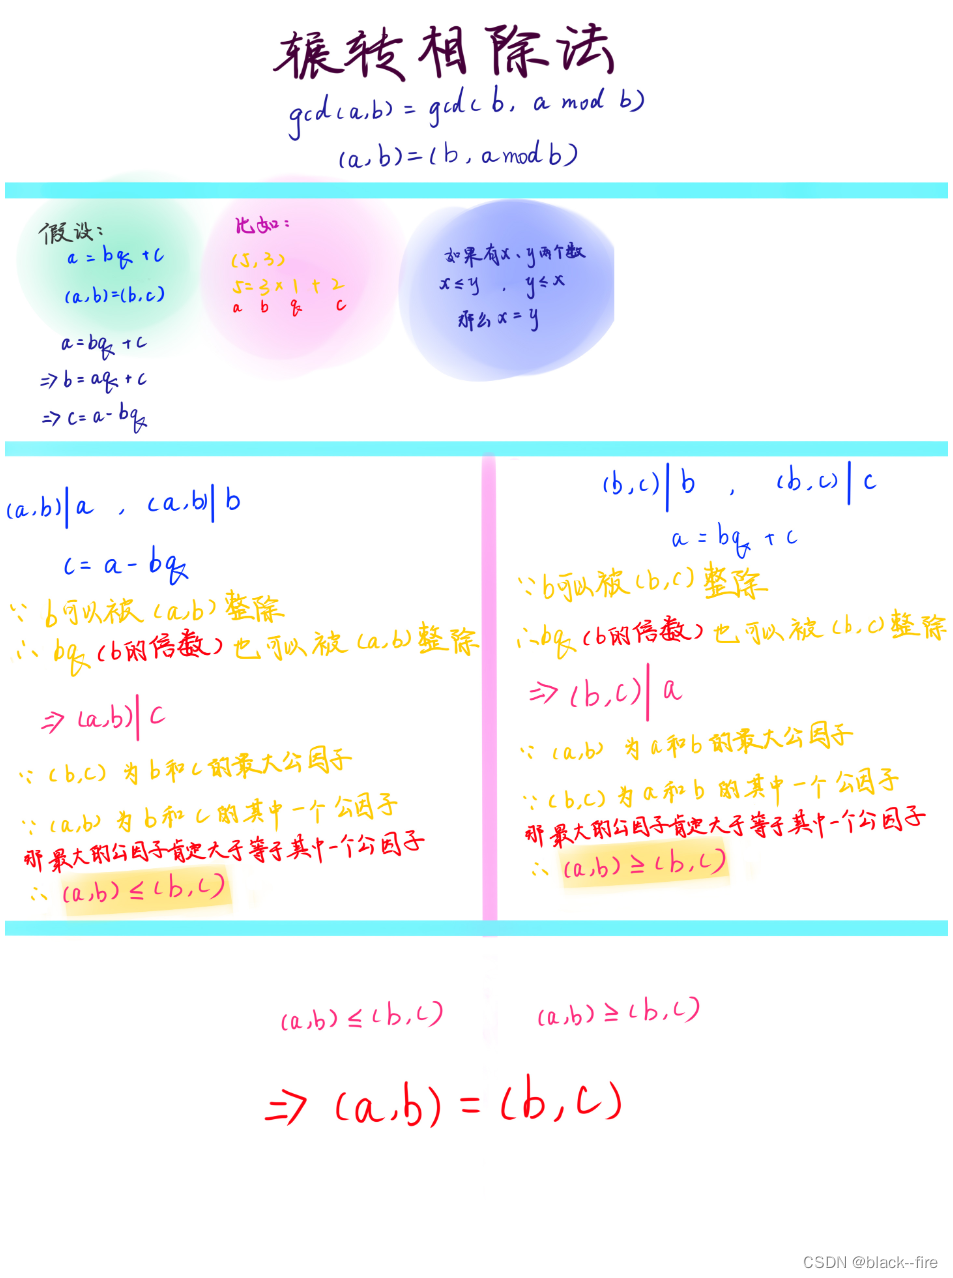 辗转相除法
gcd(a,b) = gcd(b, a mod b)
(a,b)=(b, a mod b)
假设:
a = bq + c
(a,b)=(b,c)
a=bq + c
=> b = aq + c
=> c = a - bq
比如:
(5,3)
5=3×1+2
a b q c
如果有x、y两个数
x≤y , y≤x
那么x=y
(a,b)|a , (a,b)|b
c = a - bq
∵ b可以被(a,b)整除
∴ bq(b的倍数)也可以被(a,b)整除
=> (a,b)|c
∵ (b,c)为b和c的最大公因子
∵ (a,b)为b和c的其中一个公因子
那最大的公因子肯定大于等于其中一个公因子
∴ (a,b)≤(b,c)
(b,c)|b , (b,c)|c
a = bq + c
∵b可以被(b,c)整除
∴bq(b的倍数)也可以被(b,c)整除
=> (b,c)|a
∵ (a,b)为a和b的最大公因子
∵ (b,c)为a和b的其中一个公因子
那最大的公因子肯定大于等于其中一个公因子
∴ (a,b)≥(b,c)
(a,b)≤(b,c) (a,b)≥(b,c)
=> (a,b)=(b,c)
CSDN @black--fire